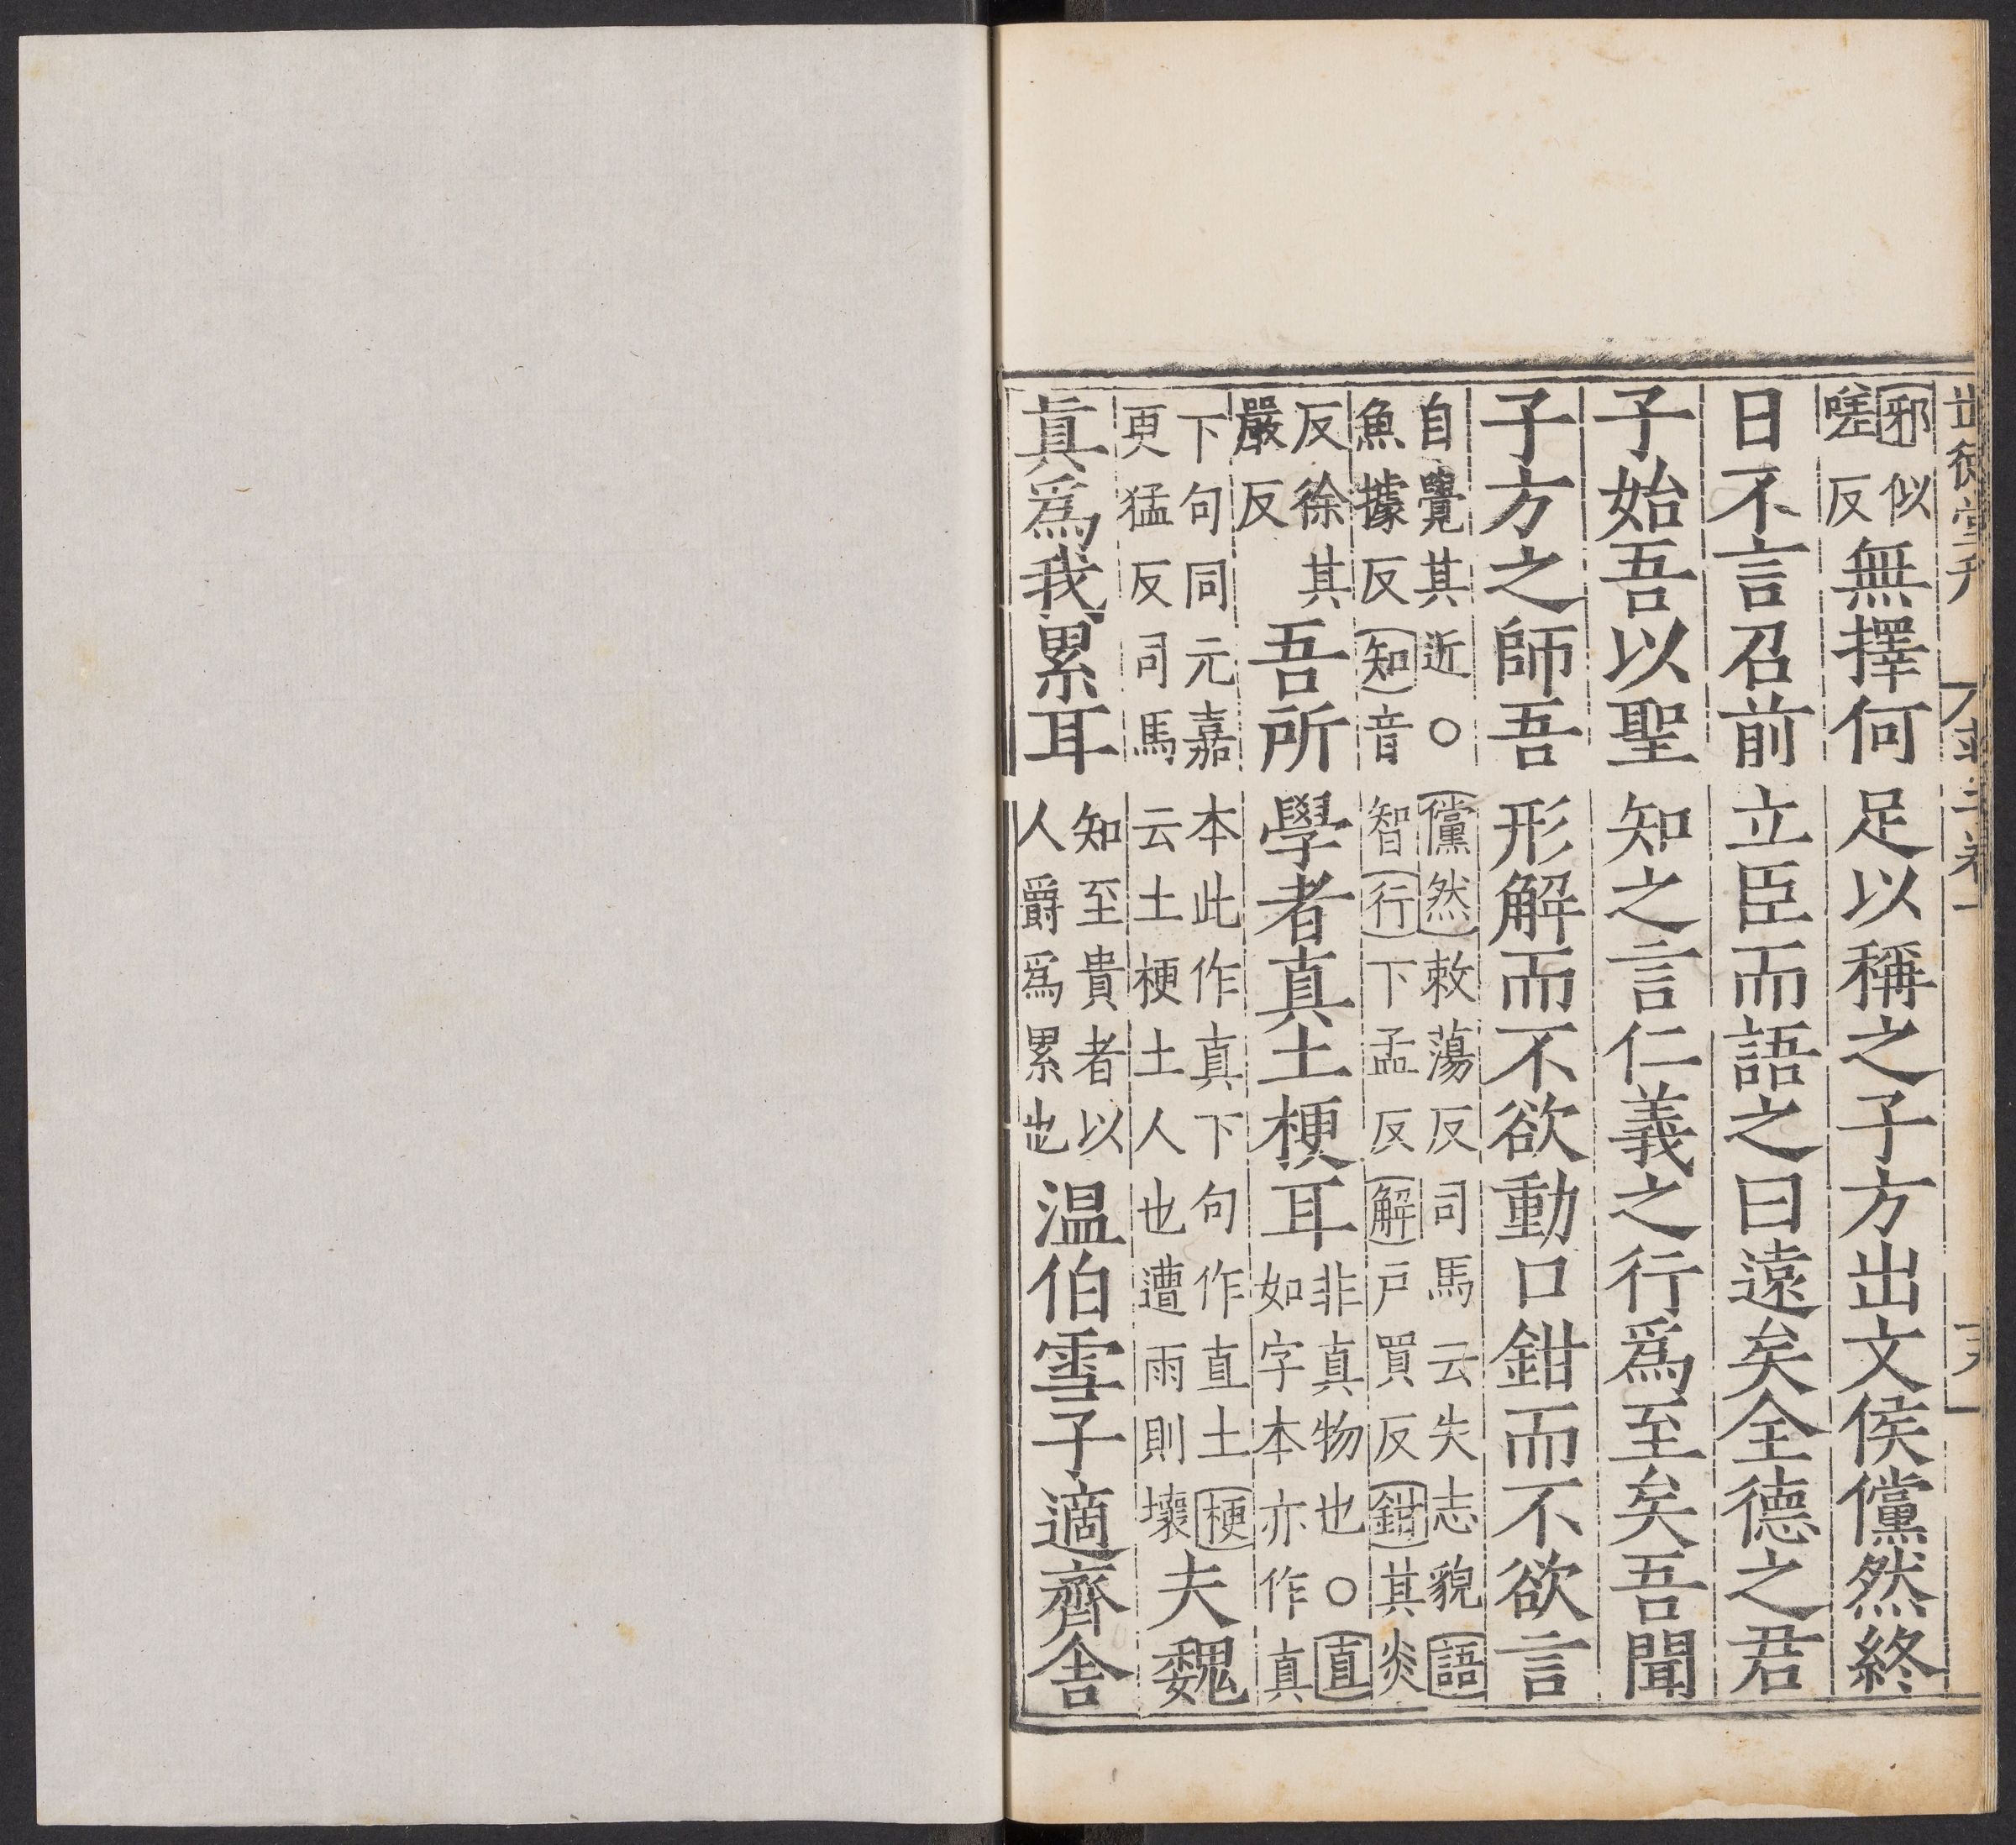 世德堂刊
邪似嗟反無擇何足以稱之子方出文侯儻然終
日不言召前立臣而語之曰遠矣全德之君
子始吾以聖知之言仁義之行爲至矣吾聞
子方之師吾形解而不欲動口鉗而不欲言
自覺其近○儻然敕蕩反司馬云失志貌語
魚據反知音智行下孟反解戶買反鉗其炎
反徐其嚴反吾所學者真土梗耳非真物也○直如字本亦作真
下句同元嘉本此作真下句作直土梗更猛反司馬云土梗土人也遭雨則壞夫魏
眞爲我累耳知至貴者以人爵爲累也温伯雪子適齊舍